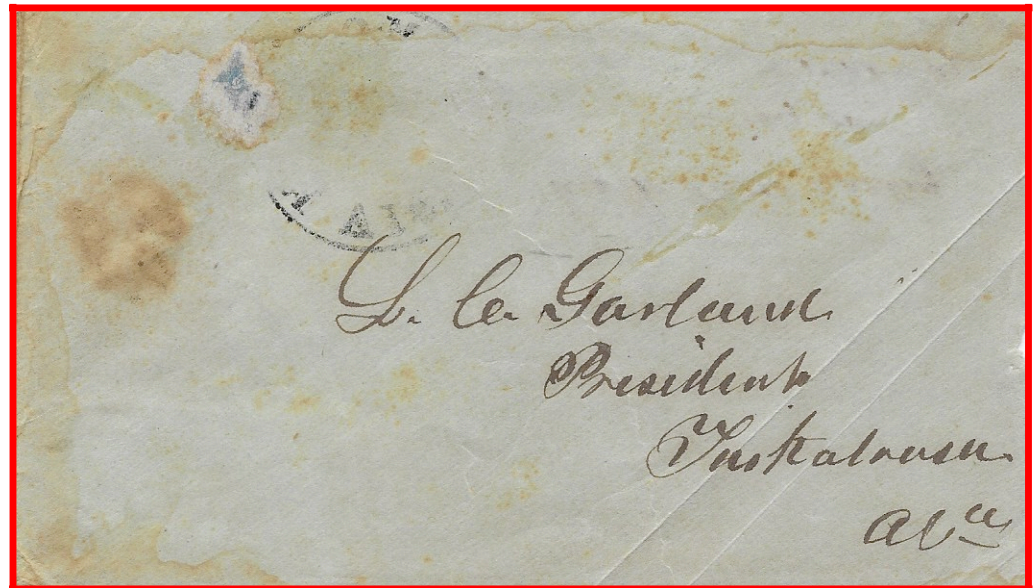 L. C. Garland
President
Tuskaloosa
Ala